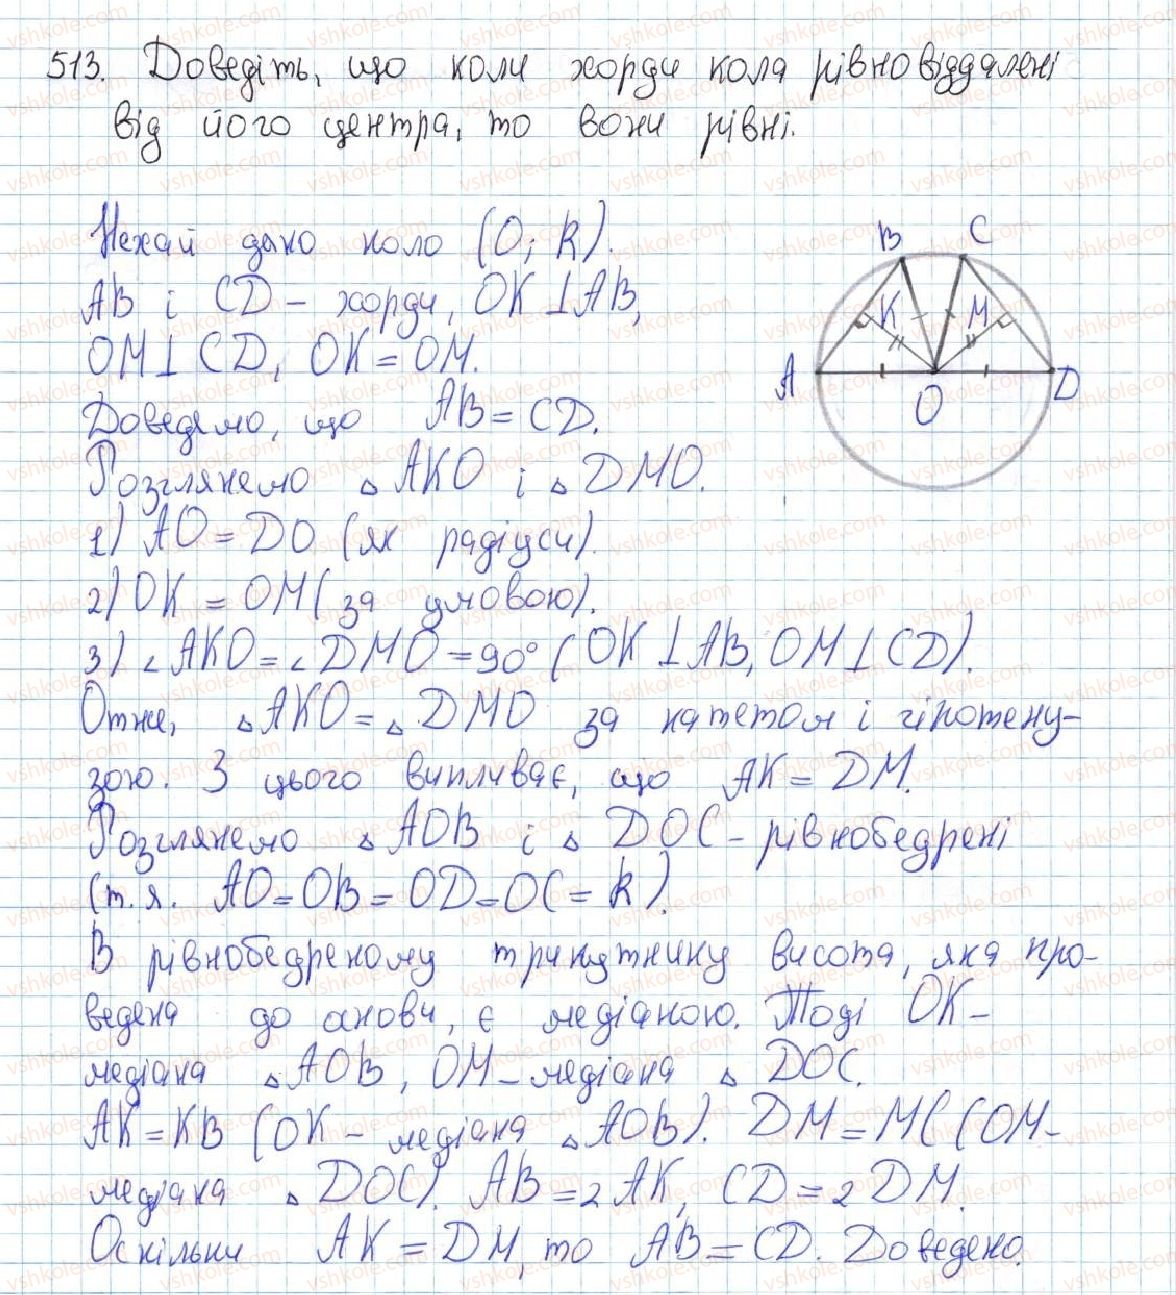 513. Доведіть, що коли хорди кола рівновіддалені
від його центра, то вони рівні.
Нехай дано коло (O; R).
AB і CD - хорди, OK⊥AB,
OM⊥CD, OK=OM.
Доведемо, що AB=CD.
Розглянемо △AKO і △DMO.
1) AO=DO (як радіуси).
2) OK=OM (за умовою).
3) ∠AKO=∠DMO=90° (OK⊥AB, OM⊥CD).
Отже, △AKO=△DMO за катетом і гіпотену-
зою. З цього випливає, що AK=DM.
Розглянемо △AOB і △DOC - рівнобедрені
(т.я. AO=OB=OD=OC=R).
В рівнобедреному трикутнику висота, яка про-
ведена до онови, є медіаною. Тоді OK-
медіана △AOB, OM-медіана △DOC.
AK=KB (OK-медіана △AOB). DM=MC (OM-
медіана △DOC). AB=2AK, CD=2DM.
Оскільки AK=DM, то AB=CD. Доведено.
B C
K M
A O D